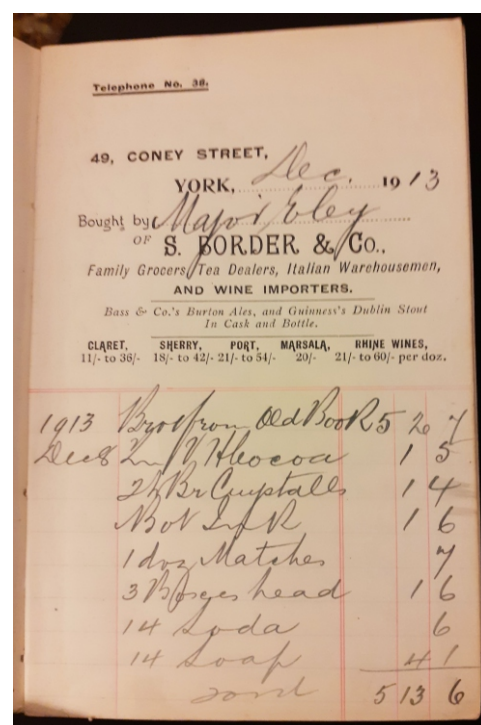 Telephone No. 38.
49, CONEY STREET,
YORK, Dec. 1913
Bought by Major Eley
OF S. BORDER & Co.,
Family Grocers, Tea Dealers, Italian Warehousemen,
AND WINE IMPORTERS.
Bass & Co.'s Burton Ales, and Guinness's Dublin Stout
In Cask and Bottle.
CLARET, SHERRY, PORT, MARSALA, RHINE WINES,
11/- to 36/- 18/- to 42/- 21/- to 54/- 20/- 21/- to 60/- per doz.
1913 Brot from Old Book 5 2 7
Dec 8 Cocoa 1 5
Br Crystalls 1 4
Bot Ink 1 6
1 doz Matches 7
3 head 1 6
14 Soda 6
14 Soap 4 1
5 13 6